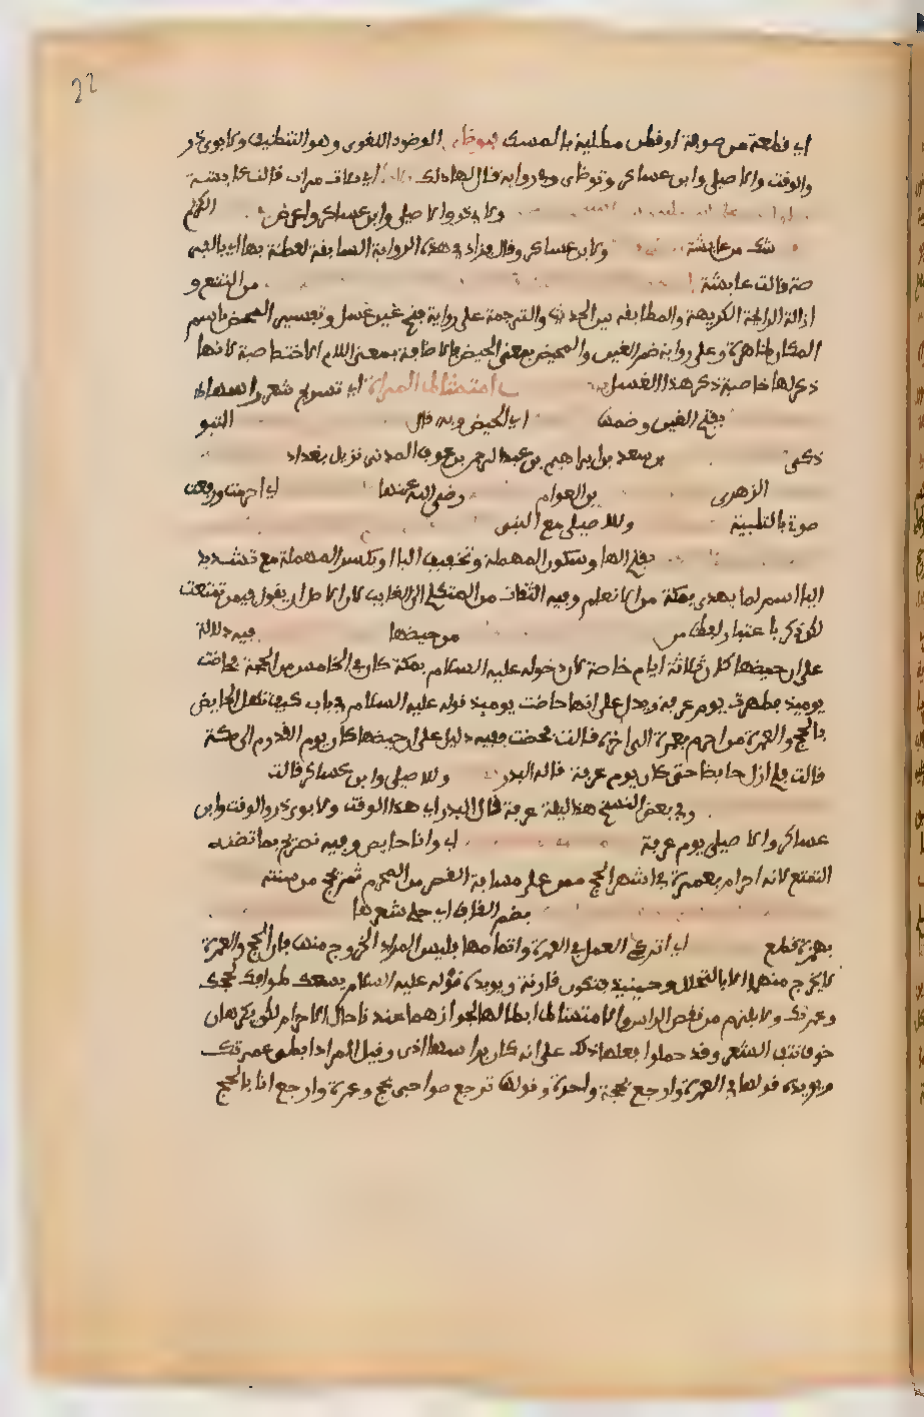 22
اي قطعة من صوفة او قطن مطلية بالمسك فتوضئ الوضوء اللغوي وهو التنظيف ولابوي ذر
والوقت والاصيلي وابن عساكر وتوظاي وفي رواية قال لها ذلك اي ثلاث مرات قالت عايشة
ولابي ذر والاصيلي وابن عساكر واعرض
شك من عايشة ولابن عساكر وقال بزاد في هذه الرواية السابقة لفظة بها اي بالفر
صة قالت عايشة من التتبع و
ازالة الرايحة الكريهة والمطابقة بين الحديث والترجمة على رواية فتح غين غسل وتفسير المحيض باسم
المكان ظاهرة وعلى رواية ضم الغين والمحيض بمعنى الحيض فالاضافة بمعنى اللام الاختصاصية لانها
ذكر لها خاصية ذكر هذا الغسل امتشاط المراة اي تسريح شعر راسها
بفتح الغين وضمها اي الحيض وبه قال
بن سعد بن ابراهيم بن عبد الرحمن بن عوف المدني نزيل بغداد
الزهري بن العوام رضي الله عنها اي احرمت ورفعت
صوتي بالتلبية وللاصيلي مع النبي
بفتح الها وسكون المهملة وتخفيف اليا او بكسر المهملة مع تشديد
اليا اسم لما يهدى بمكة من الانعام وفيه التفات من المتكلم الى الغايب لان الاصل ان يقول فيمن تمتعت
لكن ذكر باعتبار لفظ من من حيضها فيه دلالة
على ان حيضها كان ثلاثة ايام خاصة لان دخوله عليه السلام بمكة كان في الخامس من الحجة فحاضت
يوميذ فطهرت يوم عرفة ويدل على انها حاضت يوميذ قوله عليه السلام في باب كيف تهل الحايض
بالحج والعمرة من احرم بعمرة الى اخره قالت فحضت ففيه دليل على ان حيضها كان يوم القدوم الى مكة
قالت فلم ازل حايضا حتى كان يوم عرفة قاله البدر وللاصيلي وابن عساكر قالت
وفي بعض النسخ هذا ليلة عرفة قال البدر اي هذا الوقت ولابوي ذر والوقت وابن
عساكر والاصيلي يوم عرفة اي وانا حايض وفيه تصريح بما تضمنه
التمتع لانه احرام بعمرة في اشهر الحج ممن على مسافة القصر من الحرم ثم يحج من سنته
بضم القاف اي حلي شعرها
بهمزة قطع اي اتركي العمل في العمرة واتمامها فليس المراد الخروج منها فان الحج والعمرة
لا يخرج منهما الا بالتحلل وحينيذ فتكون قارنة ويويده قوله عليه السلام يسعك طوافك لحجك
وعمرتك ولا يلزم من نقض الراس والامتشاط ابطالها لجوازهما عندنا حال الاحرام لكن يكرهان
خوف نتف الشعر وقد حملوا فعلها ذلك على انه كان براسها اذى وقيل المراد ابطلي عمرتك
ويويده قولها في العمرة وارجع بحجة واحدة وقولها ترجع صواحبي بحج وعمرة وارجع انا بالحج